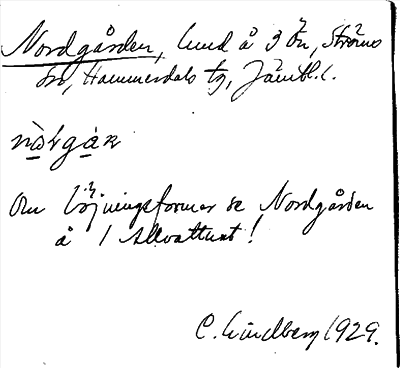 Nordgården, lund å 3 Ön, Ströms
sn, Hammerdals tg, Jämtl. l.
nòṣgạṇ
Om böjningsformer se Nordgården
å 1 Allvattnet!
C. Lindberg 1929.